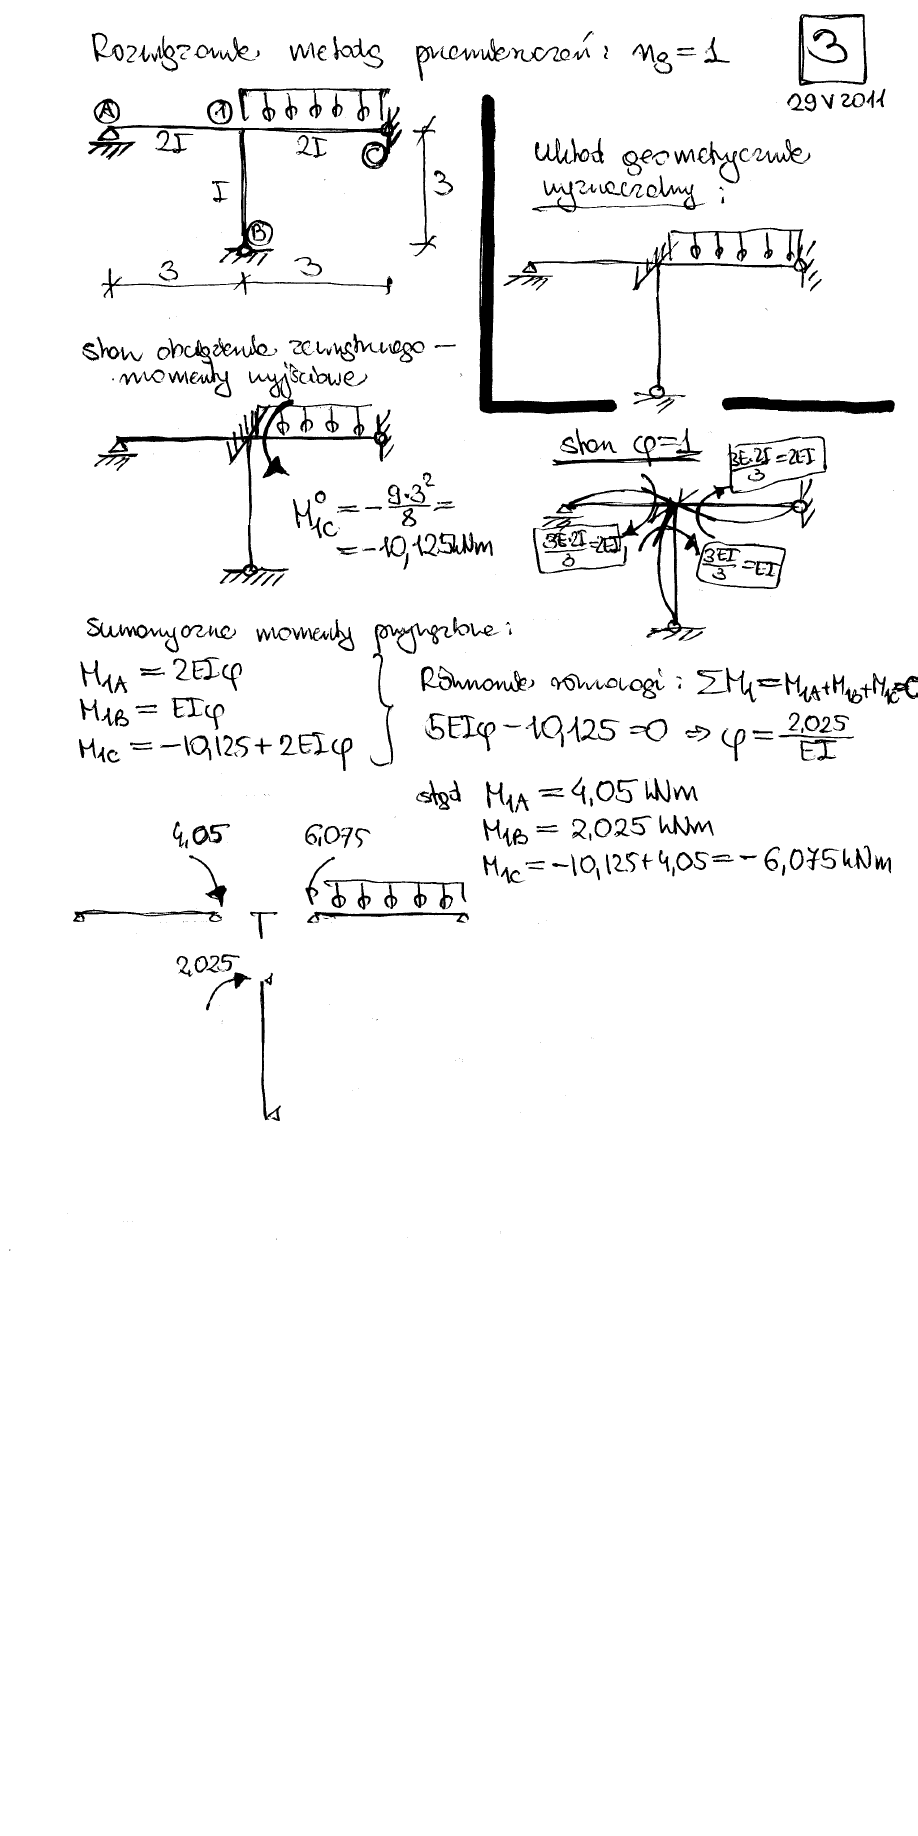 Rozwiązanie metodą przemieszczeń: ng = 1
3
29 V 2011
A 1
2I 2I
C
I 3
B
3 3
Układ geometrycznie
wyznaczalny:
stan obciążenia zewnętrznego –
momenty wyjściowe
M°1C = – 9·3²/8 =
= –10,125 kNm
stan φ=1
3E·2I/3 = 2EI
3E·2I/3 = 2EI
3EI/3 = EI
Sumaryczne momenty przywęzłowe:
M1A = 2EIφ
M1B = EIφ
M1C = –10,125 + 2EIφ
Równanie równowagi: ΣM1 = M1A + M1B + M1C = 0
5EIφ – 10,125 = 0 ⇒ φ = 2,025/EI
stąd M1A = 4,05 kNm
M1B = 2,025 kNm
M1C = –10,125 + 4,05 = – 6,075 kNm
4,05 6,075
2,025